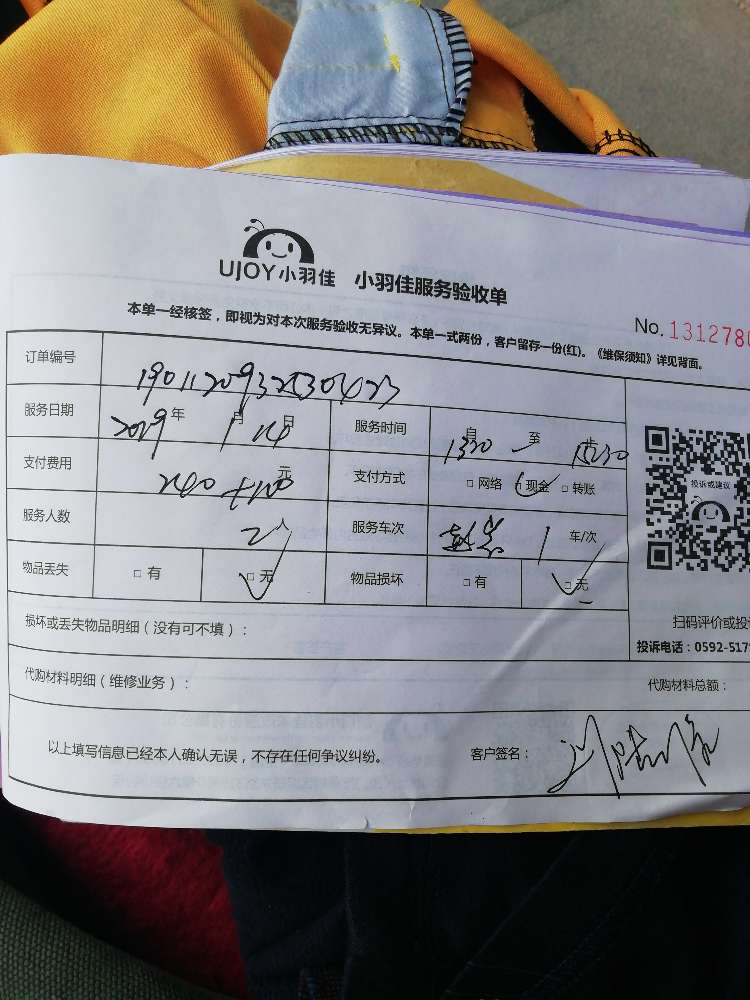 UJOY小羽佳 小羽佳服务验收单
No.1312780
本单一经核签，即视为对本次服务验收无异议。本单一式两份，客户留存一份(红)。《维保须知》详见背面。
订单编号
服务日期 2019年 1月 14日 服务时间 自 1330 至 1530
支付费用 240+100 元 支付方式 □ 网络 □ 现金 □ 转账
服务人数 2人 服务车次 1 车/次
物品丢失 □ 有 □ 无 物品损坏 □ 有 □ 无
投诉或建议
损坏或丢失物品明细（没有可不填）：
扫码评价或投
投诉电话：0592-517
代购材料明细（维修业务）： 代购材料总额：
以上填写信息已经本人确认无误，不存在任何争议纠纷。 客户签名：